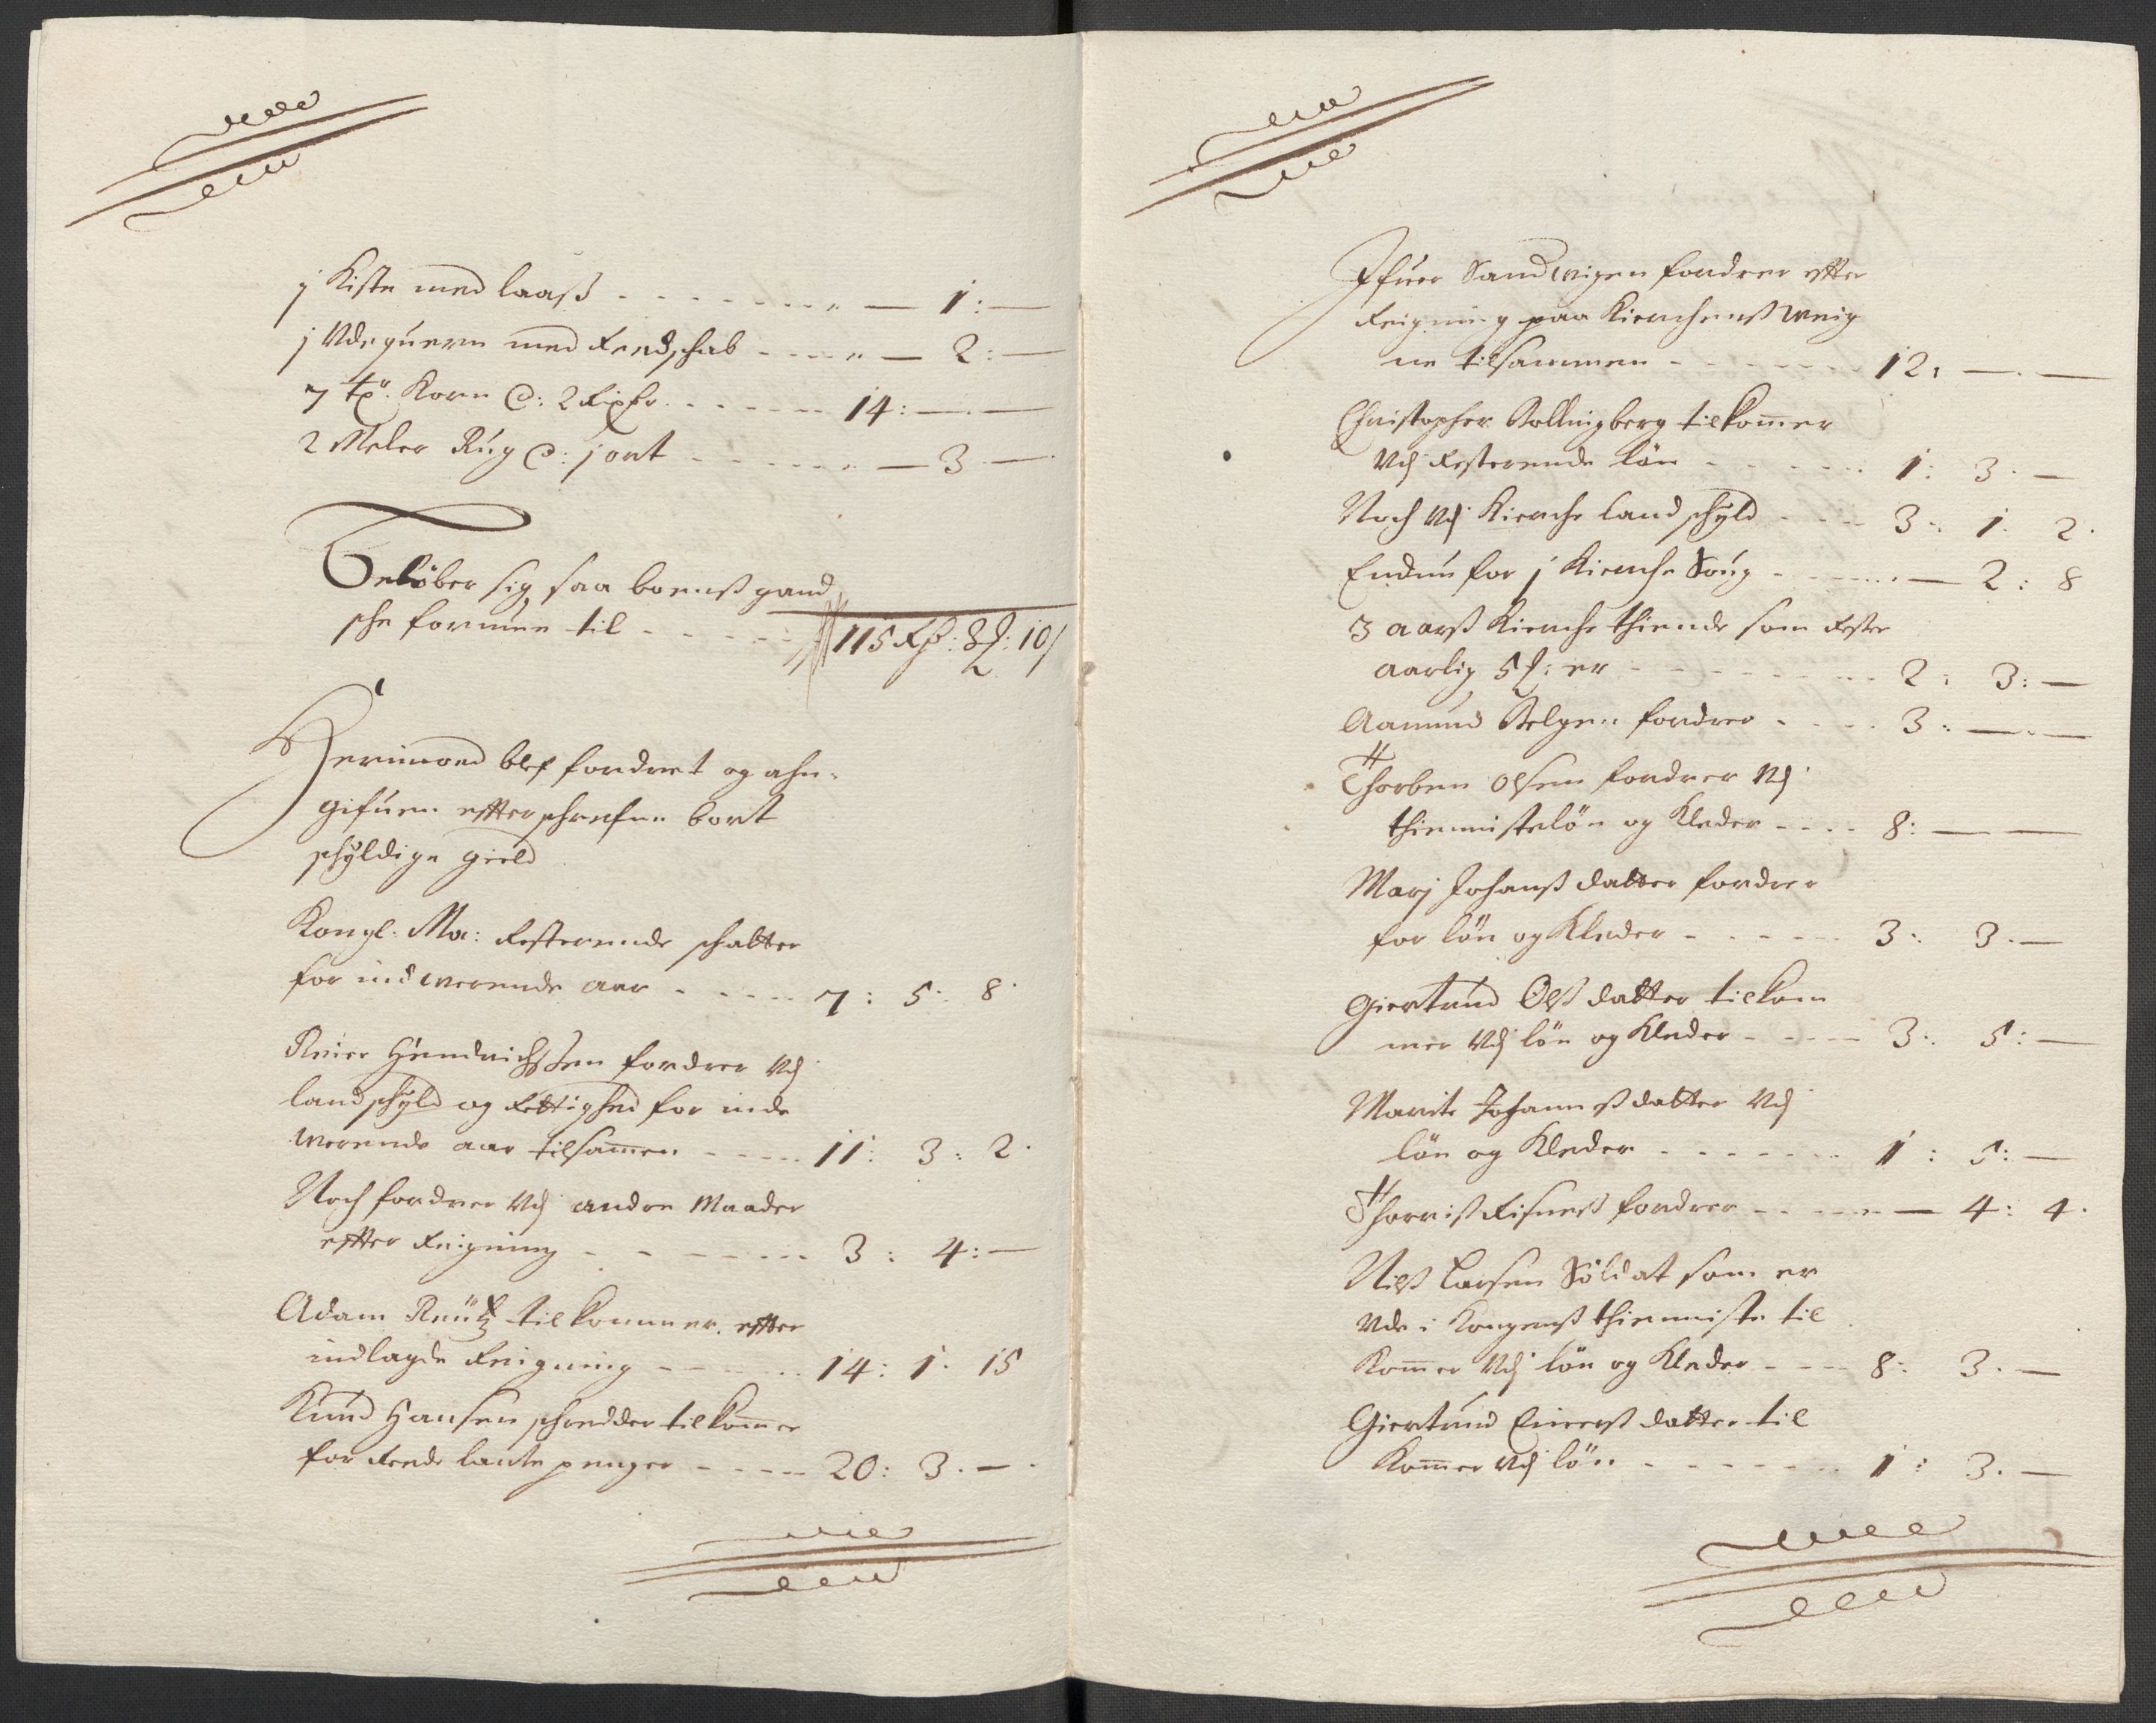 j Kiste med laaß - - - - " — 1: —
j Vdequern med Reedschab - - - " — 2: —
7 tr. Korn @: 2 Rixdr. - - - - 14: — —
2 Meler Rug @: j ort - - - - " — 3 —
Beløber sig saa boens gand
sche formue til - - - - 115 Rdr: 3 : 10
Herimoed blef fordret og ahn-
gifuen effterschrefne bort
schyldige gield
Kongl: Ma: Resterende schatter
for indwerende aar - - - - 7: 5: 8
Reier Hendrichssen fordrer Vdj
landschyld og Rettighed for inde
werende aar tilsamen - - - - 11: 3: 2
Noch fordrer Vdj andre Maader
effter Reigning - - - - 3: 4: —
Adam tilkommer effter
indlagde Reigning - - - - 14: 1: 15
Knud Hansen schredder tilkomer
for Rede laante penger - - - - 20: 3. —
Ifuer Sandwigen fordrer effter
Reigning paa Kierchens weig
ne tilsammen - - - - 12: — —
Christopher Bollingberg tilkomer
Vdj Resterende løn - - - - 1: 3. —
Noch Vdj Kierche landschyld - - - 3: 1. 2.
Endnu for j Kierche Koug - - - — 2: 8
3 aars Kierche thiende som Rester
aarlig 5 : er - - - - 2: 3: —
Aamund Belgen fordrer - - - - 3: — —
Thorben Olsen fordrer Vdj
thienniste løn og Kleder - - - - 8: — —
Marj Johansdatter fordrer
for løn og Kleder - - - - 3: 3. —
Giertrud Olsdatter tilkom
mer Vdj løn og Kleder - - - - 3: 5: —
Marite Johannsdatter Vdj
løn og Kleder - - - - 1: 5: —
Thorris Risnes fordrer - - - - — 4: 4.
Nils Larsen Soldat som er
Vde i Kongens thienniste til
Komer Vdj løn og Kleder - - - - 8: 3. —
Giertrud Einersdatter til
Komer Vdj løn - - - - 1: 3. —